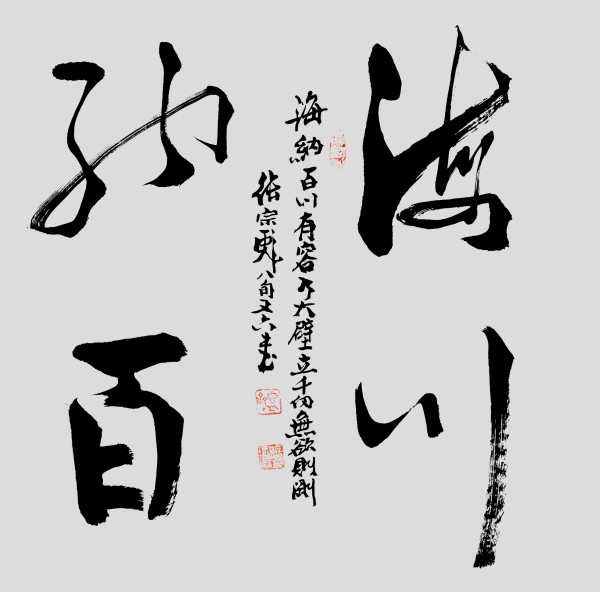 海納
百川
海納百川有容乃大壁立千仞無欲則剛
張宗 八旬又六書